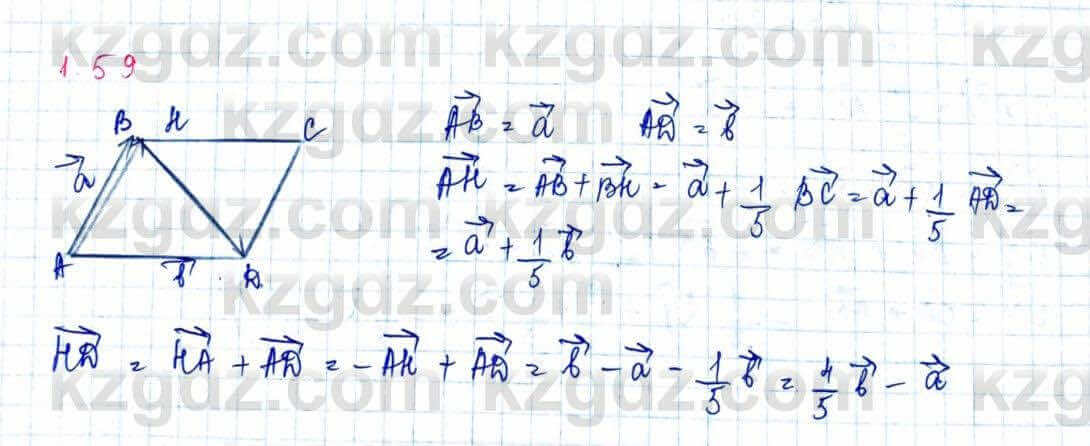 kzgdz.com kzgdz.com kz
1.59
B H C
A D
\vec{a}
\vec{b}
\vec{AB} = \vec{a} \vec{AD} = \vec{b}
\vec{AH} = \vec{AB} + \vec{BH} = \vec{a} + \frac{1}{5} \vec{BC} = \vec{a} + \frac{1}{5} \vec{AD} =
= \vec{a} + \frac{1}{5} \vec{b}
kzgdz.com
\vec{HD} = \vec{HA} + \vec{AD} = -\vec{AH} + \vec{AD} = \vec{b} - \vec{a} - \frac{1}{5} \vec{b} = \frac{4}{5} \vec{b} - \vec{a}
kzgdz.com kzgdz.com kzg